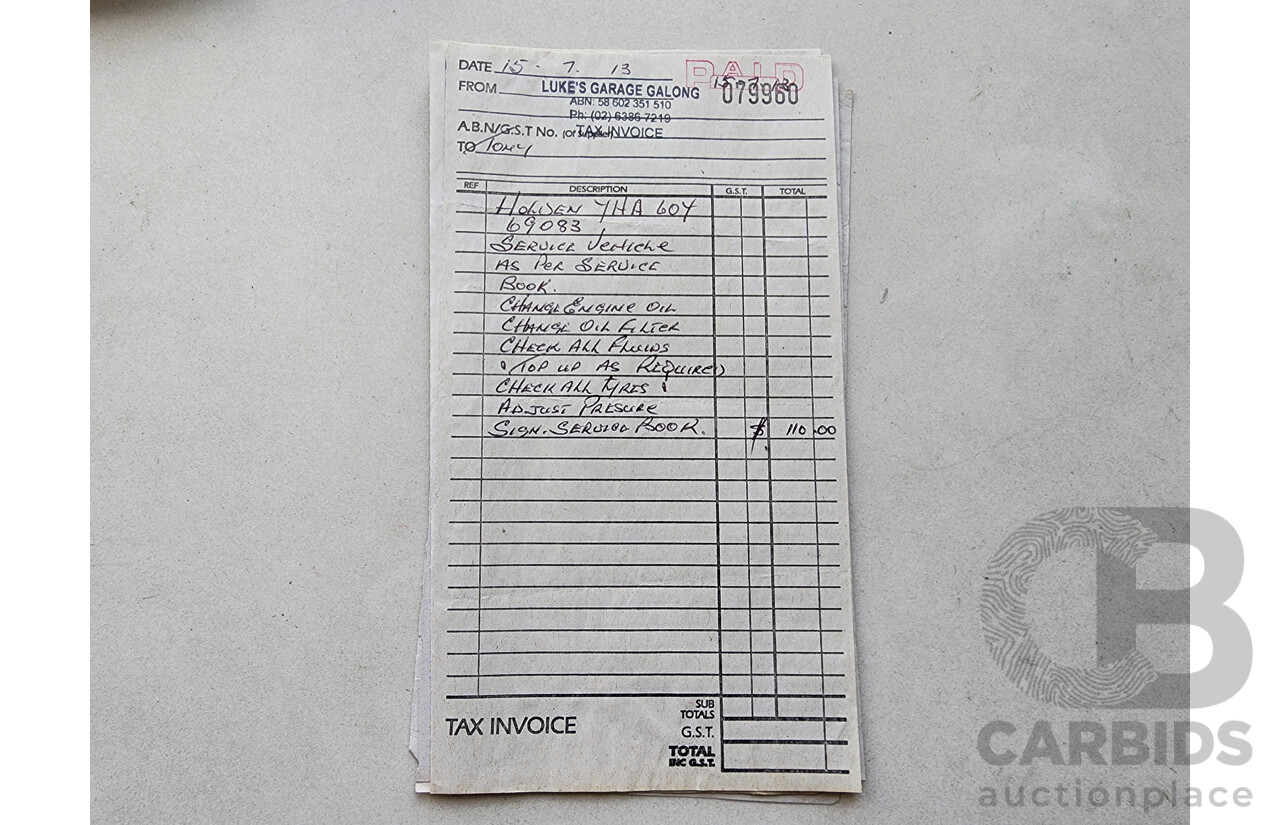 DATE 15 - 7. 13
PAID
15-7-13
FROM LUKE'S GARAGE GALONG
079960
ABN: 58 602 351 510
Ph: (02) 6386 7219
A.B.N/G.S.T No. (Of Supplier) TAX INVOICE
TO Tony
REF DESCRIPTION G.S.T. TOTAL
HOLDEN YHA 60Y
69083
SERVICE VEHICLE
AS PER SERVICE
BOOK.
CHANGE ENGINE OIL
CHANGE OIL FILTER
CHECK ALL FLUIDS
TOP UP AS REQUIRED
CHECK ALL TYRES
ADJUST PRESURE
SIGN. SERVICE BOOK. $ 110.00
SUB TOTALS
TAX INVOICE
G.S.T.
TOTAL INC G.S.T.
CB
CARBIDS
auctionplace